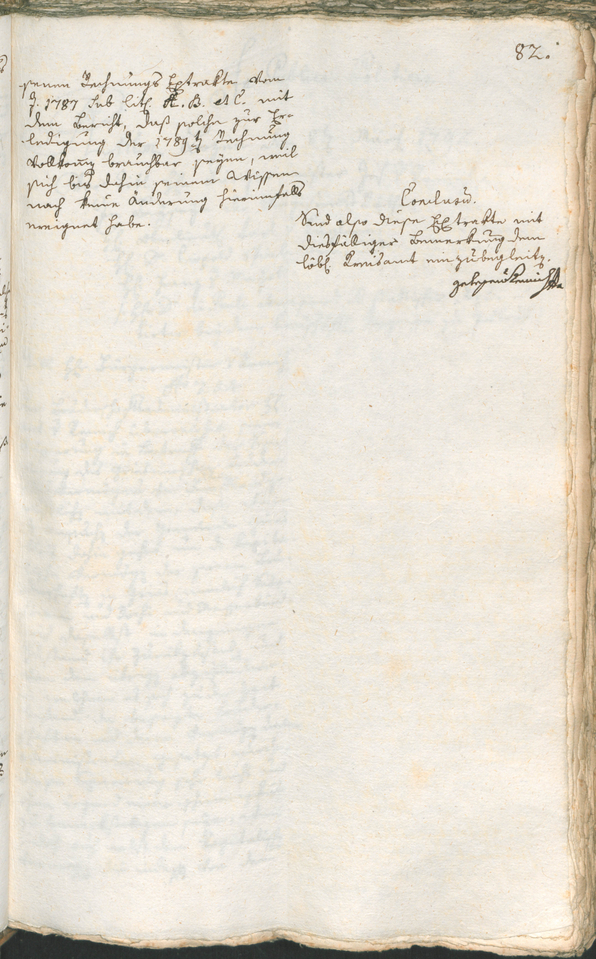 82.
senen Rechnungs Extrakte vom
J. 1787 sub lit. A. B. et C. mit
dem Bericht, daß solche zur Er-
ledigung der 1789 Rechnung
vollkomn brauchbar seyen, weil
sich bis dahin seinem Wissen
nach keine Änderung hierinnfalls
ereignet habe.
Conclusu.
Sind also diese Extrakte mit
diesfälliger Bemerkung dem
löbl. Kreisamt einzubegleitn.